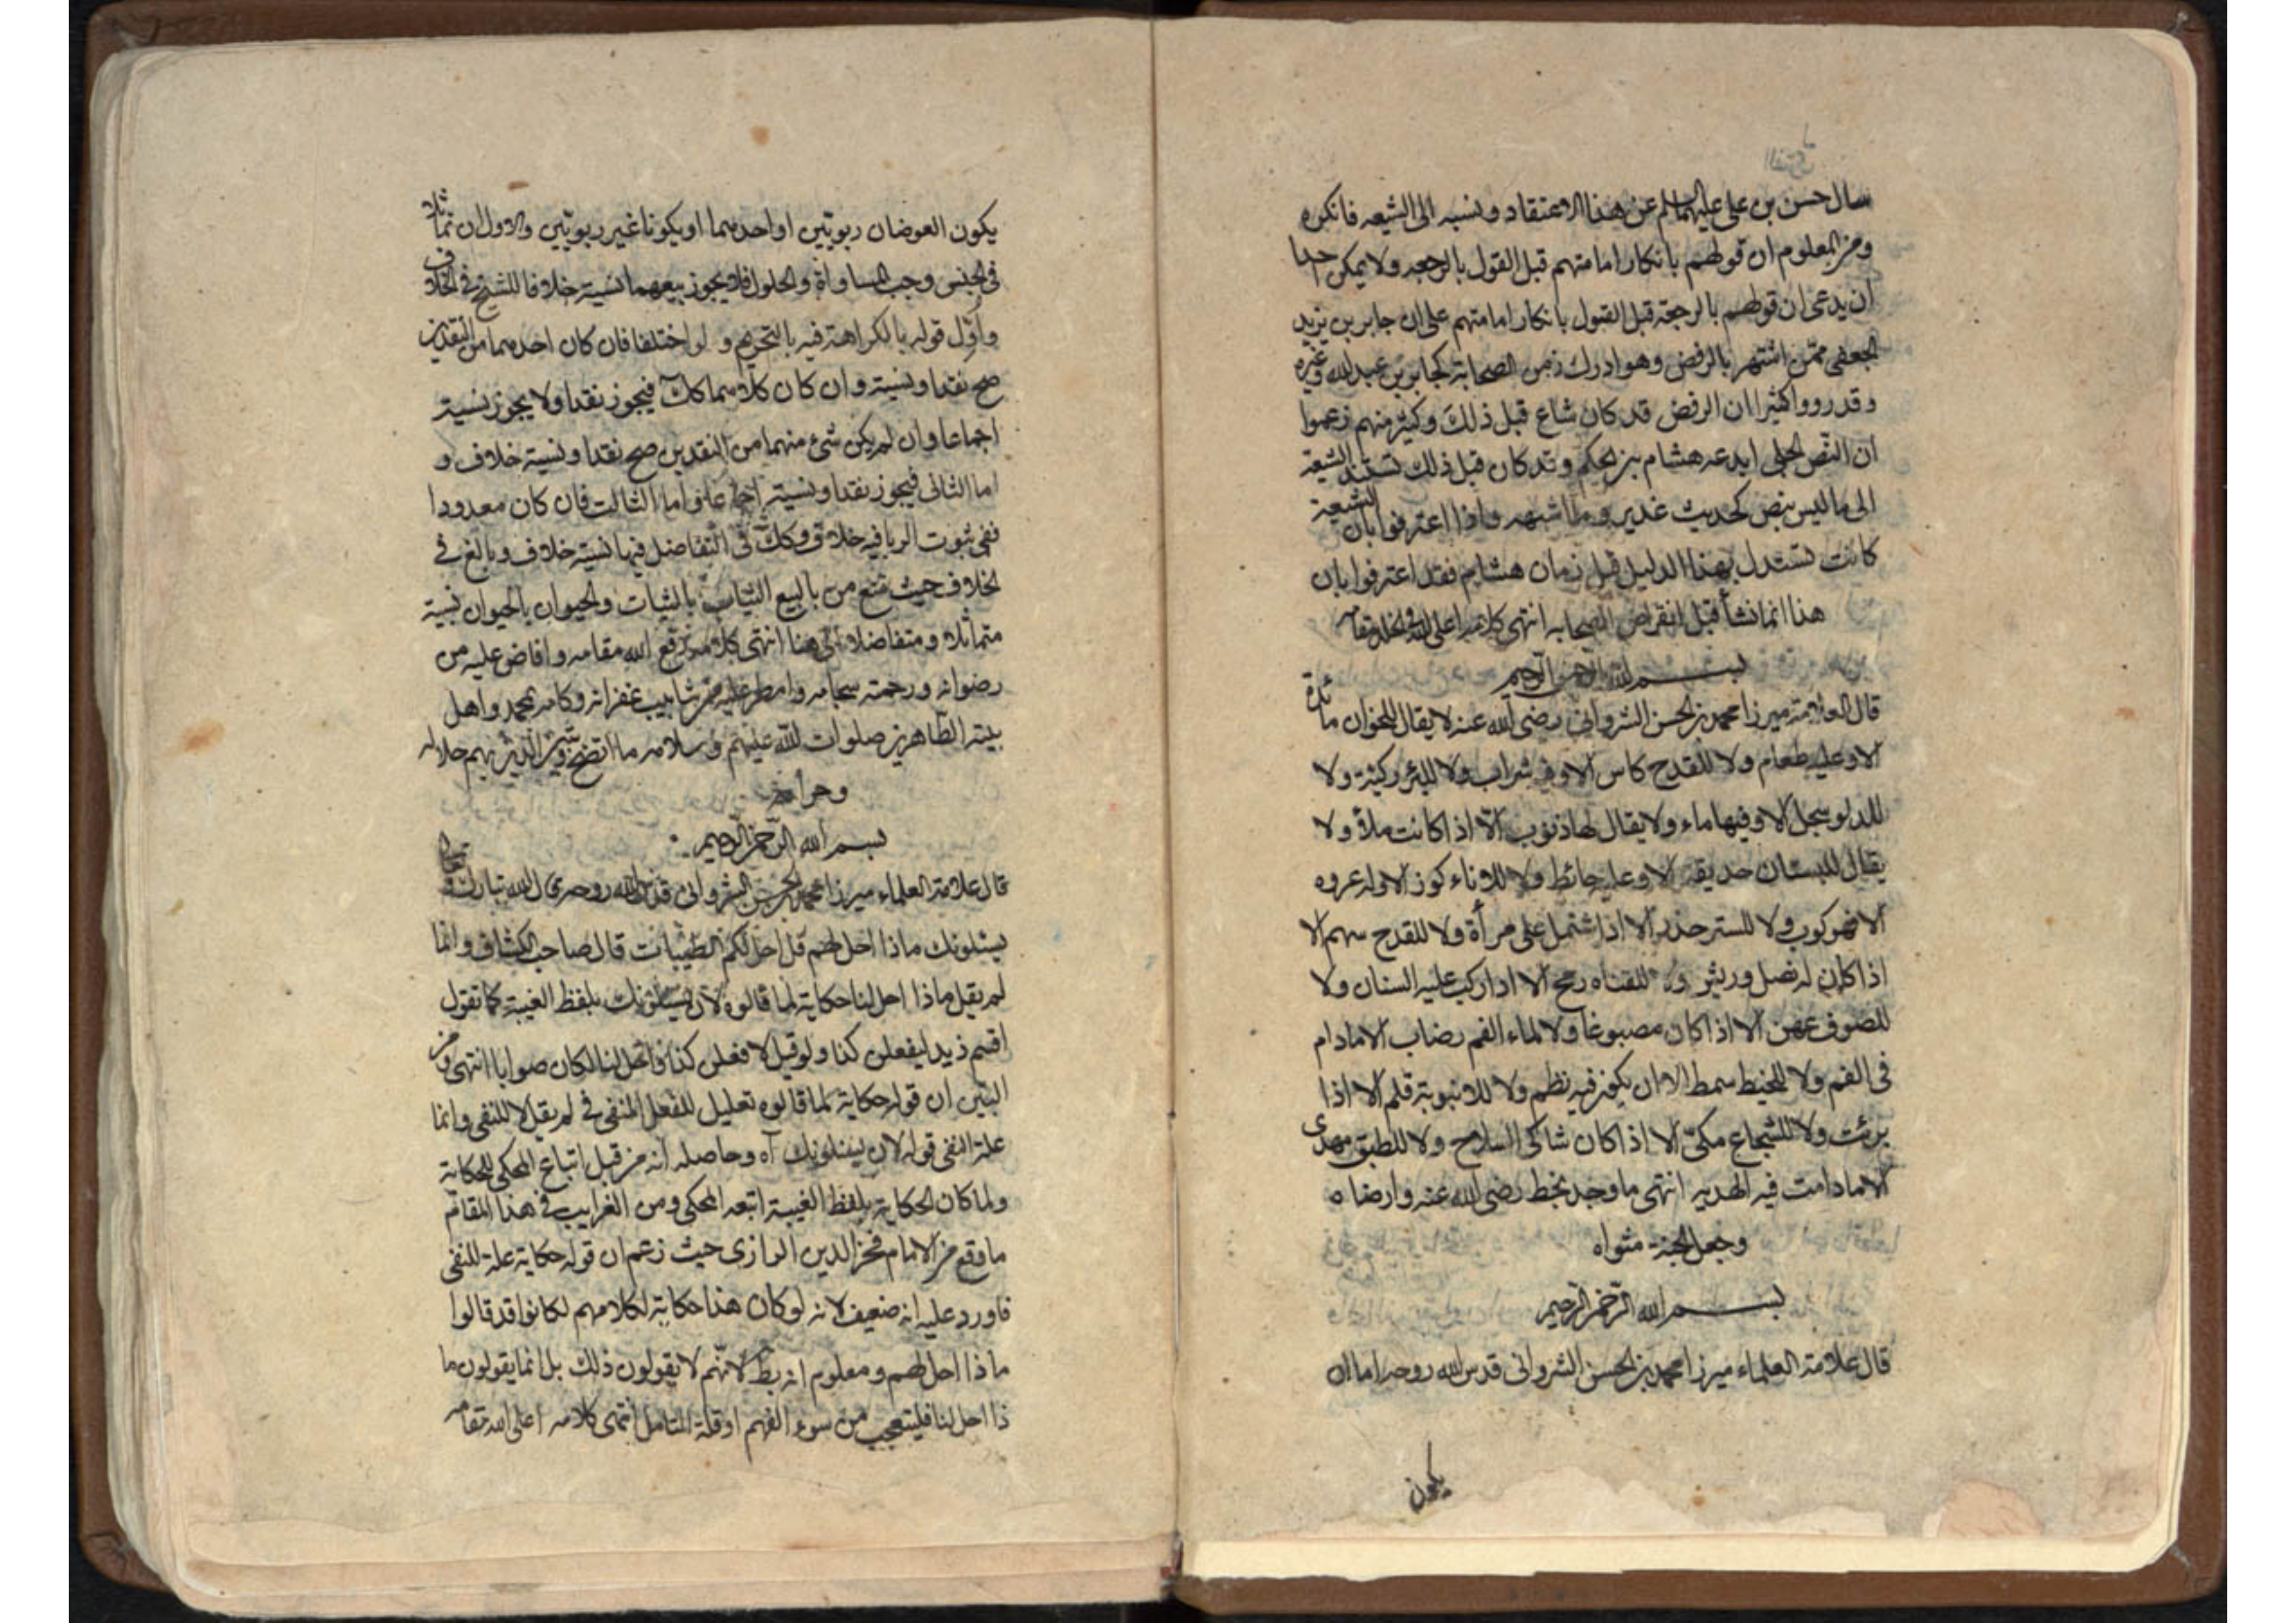 سال حسن بن علي عليهما السلم عن هذا الاعتقاد ونسبه الى الشيعه فانكره
ومن المعلوم ان قولهم بانكار امامتهم قبل القول بالرجعه ولا يمكن
ان يدعى ان قولهم بالرجعة قبل القول بانكار امامتهم على ان جابر بن يزيد
الجعفي ممن اشتهر بالرفض وهو ادرك زمن الصحابة كجابر بن عبد الله وغيره
وقد رووا كثيرا ان الرفض قد كان شاع قبل ذلك وكثير منهم زعموا
ان النص الجلي ابدعه هشام بن الحكم وقد كان قبل ذلك تستند الشيعة
الى ما ليس بنص كحديث غدير وما اشبهه واذا اعترفوا بان الشيعة
كانت تستدل بهذا الدليل قبل زمان هشام فقد اعترفوا بان
هذا انما نشأ قبل انقراض الصحابه انتهى كلامه اعلى الله في الخلد مقامه
بسم الله الرحمن الرحيم
قال العلامة ميرزا محمد بن الحسن الشرواني رضي الله عنه لا يقال للخوان مائدة
الا وعليه طعام ولا للقدح كاس الا وفي شراب ولا للبئر ركية ولا
للدلو سجل الا وفيها ماء ولا يقال لها ذنوب الا اذا كانت ملأ ولا
يقال للبستان حديقة الا وعليه حائط ولا للاناء كوز الا وله عروه
الا فهو كوب ولا للستر خدر الا اذا اشتمل على مرأة ولا للقدح سهم الا
اذا كان له نصل وريش ولا للقناه رمح الا اذا ركب عليه السنان ولا
للصوف عهن الا اذا كان مصبوغا ولا لماء الفم رضاب الا مادام
في الفم ولا للخيط سمط الا ان يكون فيه نظم ولا للانبوبة قلم الا اذا
برئت ولا للشجاع مكي الا اذا كان شاكي السلاح ولا للطبق مهدى
الا مادامت فيه الهديه انتهى ما وجد بخط رضي الله عنه وارضاه
وجعل الجنة مثواه
بسم الله الرحمن الرحيم
قال علامة العلماء ميرزا محمد بن الحسن الشرواني قدس الله روحه اما ان
يكون
يكون العوضان ربويين او احدهما او يكونا غير ربويين والاول ان تماثلا
في الجنس وجب المساواة والحلول فلا يجوز بيعهما نسية خلافا للشيخ في الخلاف
واول قوله بالكراهة فيه بالتحريم ولو اختلفا فان كان احدهما من النقدين
صح نقدا ونسية وان كان كلاهما كك فيجوز نقدا ولا يجوز نسية
اجماعا وان لم يكن شئ منهما من النقدين صح نقدا ونسية خلاف و
اما الثاني فيجوز نقدا ونسية اجماعا واما الثالث فان كان معدودا
ففي ثبوت الربا فيه خلاف وكك في التفاضل فيها نسية خلاف وبالغ في
الخلاف حيث منع من بالبيع الثياب بالثياب والحيوان بالحيوان نسية
متماثلا ومتفاضلا الى هنا انتهى كلامه رفع الله مقامه وافاض عليه من
رضوانه ورحمته سجامه وامطر عليه من شابيب غفرانه وكامه بمحمد واهل
بيته الطاهرين صلوات الله عليهم وسلامه ما اتضح بهم حلاله
وحرامه
بسم الله الرحمن الرحيم
قال علامة العلماء ميرزا محمد بن الحسن الشرواني قدس الله روحه قال الله تبارك وتعالى
يسئلونك ماذا احل لهم قل احل لكم الطيبات قال صاحب الكشاف وانما
لم يقل ماذا احل لنا حكاية لما قالوه لان يسئلونك بلفظ الغيبة كما تقول
اقسم زيد ليفعلن كذا ولو قيل لافعلن كذا واحل لنا لكان صوابا انتهى ومن
البين ان قوله حكاية لما قالوه تعليل للفعل المنفي في لم يقل لا للنفي وانما
علة النفي قوله لان يسئلونك آه وحاصله انه من قبل اتباع المحكي للحكاية
ولما كان الحكاية بلفظ الغيبة اتبعه المحكي ومن الغرايب في هذا المقام
ما وقع من الامام فخر الدين الرازي حيث زعم ان قوله حكاية علة للنفي
فاورد عليه انه ضعيف لانه لو كان هذا حكاية لكلامهم لكانوا قد قالوا
ماذا احل لهم ومعلوم انه بط لانهم لا يقولون ذلك بل انما يقولون ما
ذا احل لنا فليتعجب من سوء الفهم او قلة التامل انتهى كلامه اعلى الله مقامه